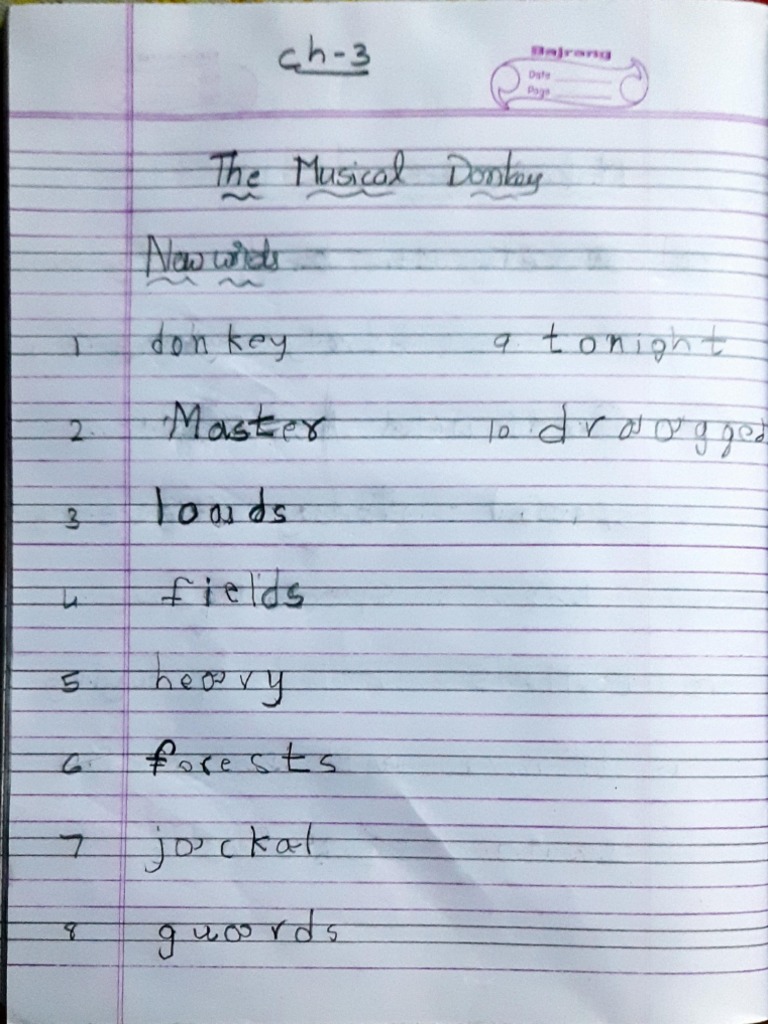 ch-3
Bajrang
Date
Page
The Musical Donkey
New words
1 donkey
2. Master
3 loads
4 fields
5. heavy
6. forests
7 jackal
8 guards
9. tonight
10 draagged